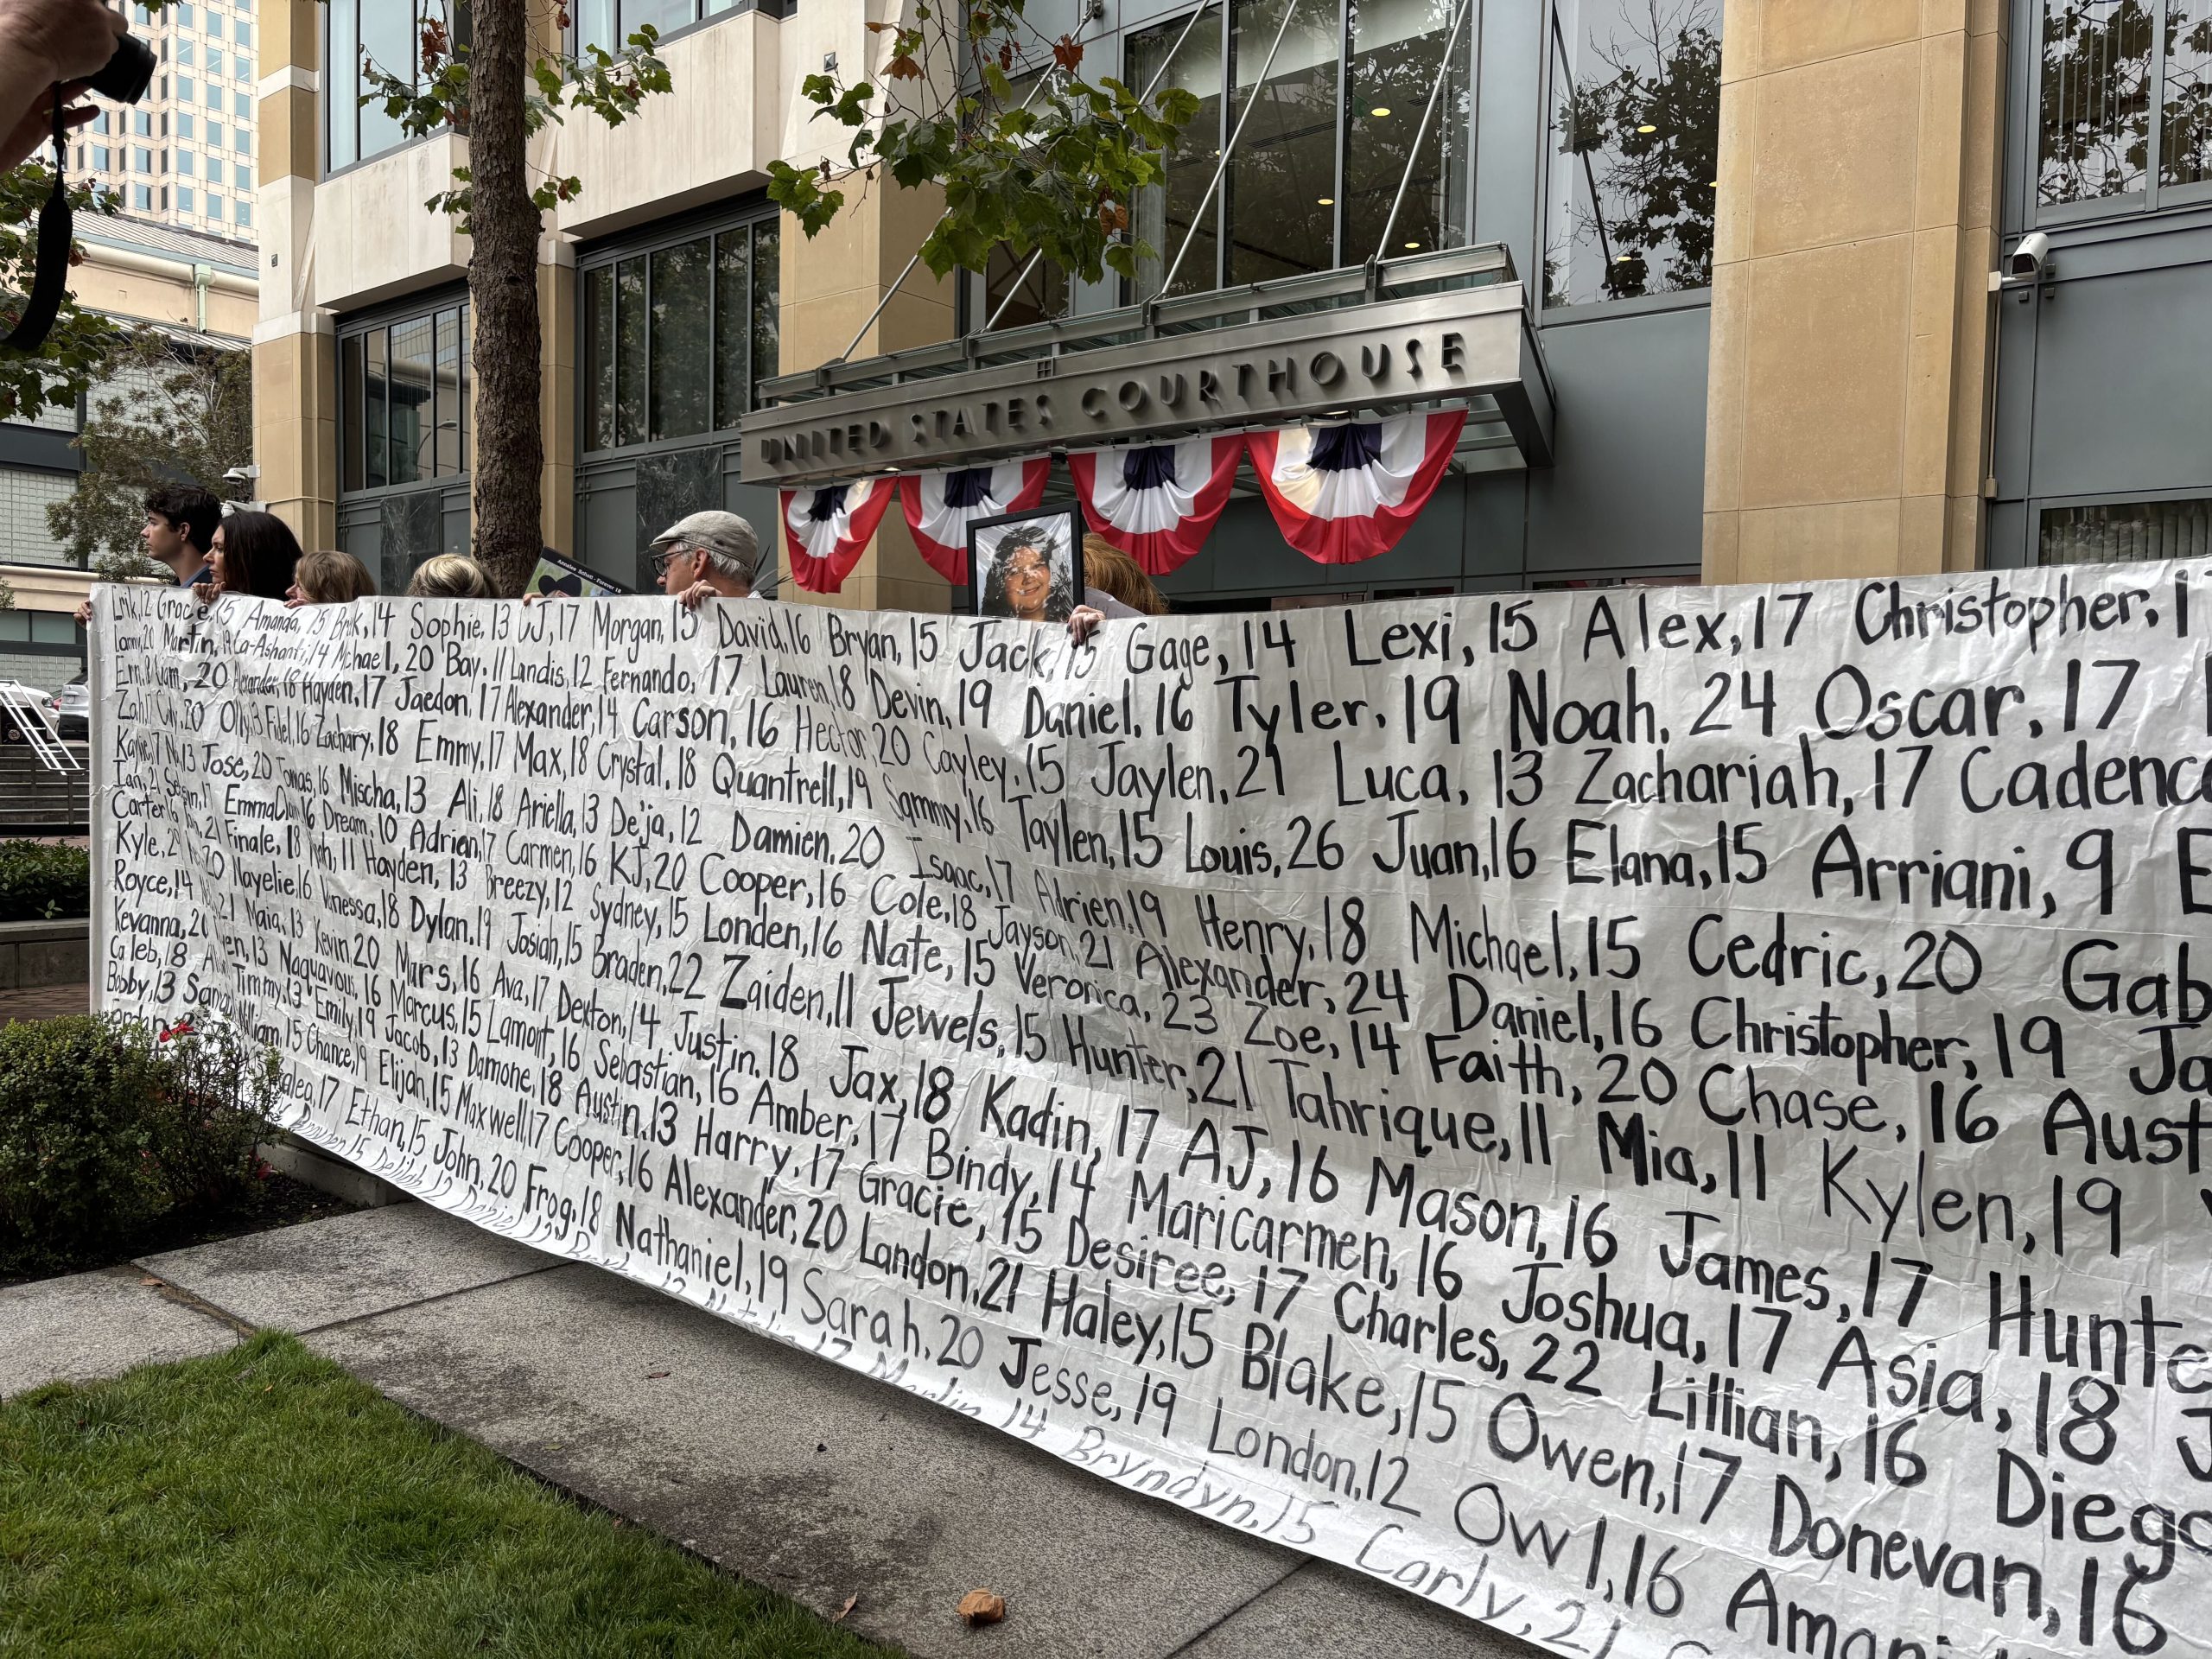 UNITED STATES COURTHOUSE
Forever 18
Grace, 15 Amanda, 15 14 Sophie, 13 CJ, 17 Morgan, 15 David, 16 Bryan, 15 Jack, 15 Gage, 14 Lexi, 15 Alex, 17 Christopher, 1
20 Martin, 19 Ca-Ashanti, 14 Michael, 20 Bay, 11 Landis, 12 Fernando, 17 Lauren, 18 Devin, 19 Daniel, 16 Tyler, 19 Noah, 24 Oscar, 17
20 Alexander, 18 Hayden, 17 Jaedon, 17 Alexander, 14 Carson, 16 Hector, 20 Cayley, 15 Jaylen, 21 Luca, 13 Zachariah, 17 Cadenc
20 Olly, 13 Fidel, 16 Zachary, 18 Emmy, 17 Max, 18 Crystal, 18 Quantrell, 19 Sammy, 16 Taylen, 15 Louis, 26 Juan, 16 Elana, 15 Arriani, 9 E
13 Jose, 20 Tomas, 16 Mischa, 13 Ali, 18 Ariella, 13 De'ja, 12 Damien, 20 Isaac, 17 Adrien, 19 Henry, 18 Michael, 15 Cedric, 20 Gab
Ian, 21 17 16 Dream, 10 Adrien, 17 Carmen, 16 KJ, 20 Cooper, 16 Cole, 18 Jayson, 21 Alexander, 24 Daniel, 16 Christopher, 19 Ja
Carter, 16 21 Finale, 18 11 Hayden, 13 Breezy, 12 Sydney, 15 Londen, 16 Nate, 15 Veronica, 23 Zoe, 14 Faith, 20 Chase, 16 Aust
Kyle, 20 Nayelie, 16 Vanessa, 18 Dylan, 19 Josiah, 15 Braden, 22 Zaiden, 11 Jewels, 15 Hunter, 21 Tahrique, 11 Mia, 11 Kylen, 19
Royce, 14 21 Naia, 13 Kevin, 20 Mars, 16 Ava, 17 Dexton, 14 Justin, 18 Jax, 18 Kadin, 17 AJ, 16 Mason, 16 James, 17 Hunte
Kevanna, 20 13 Naquavous, 16 Marcus, 15 Lamont, 16 Sebastian, 16 Amber, 17 Bindy, 14 Maricarmen, 16 Joshua, 17 Asia, 18 J
Caleb, 18 Timmy, 13 Emily, 19 Jacob, 13 Damone, 18 Austin, 13 Harry, 17 Gracie, 15 Desiree, 17 Charles, 22 Lillian, 16 Diego
Bobby, 13 William, 15 Chance, 19 Elijah, 15 Maxwell, 17 Cooper, 16 Alexander, 20 Landon, 21 Haley, 15 Blake, 15 Owen, 17 Donevan, 16
17 Ethan, 15 John, 20 Frog, 18 Nathaniel, 19 Sarah, 20 Jesse, 19 London, 12 Owl, 16 Amani
15 Delilah, 12 Daniel, 13 17 Marlin, 14 Bryndyn, 15 Carly, 21